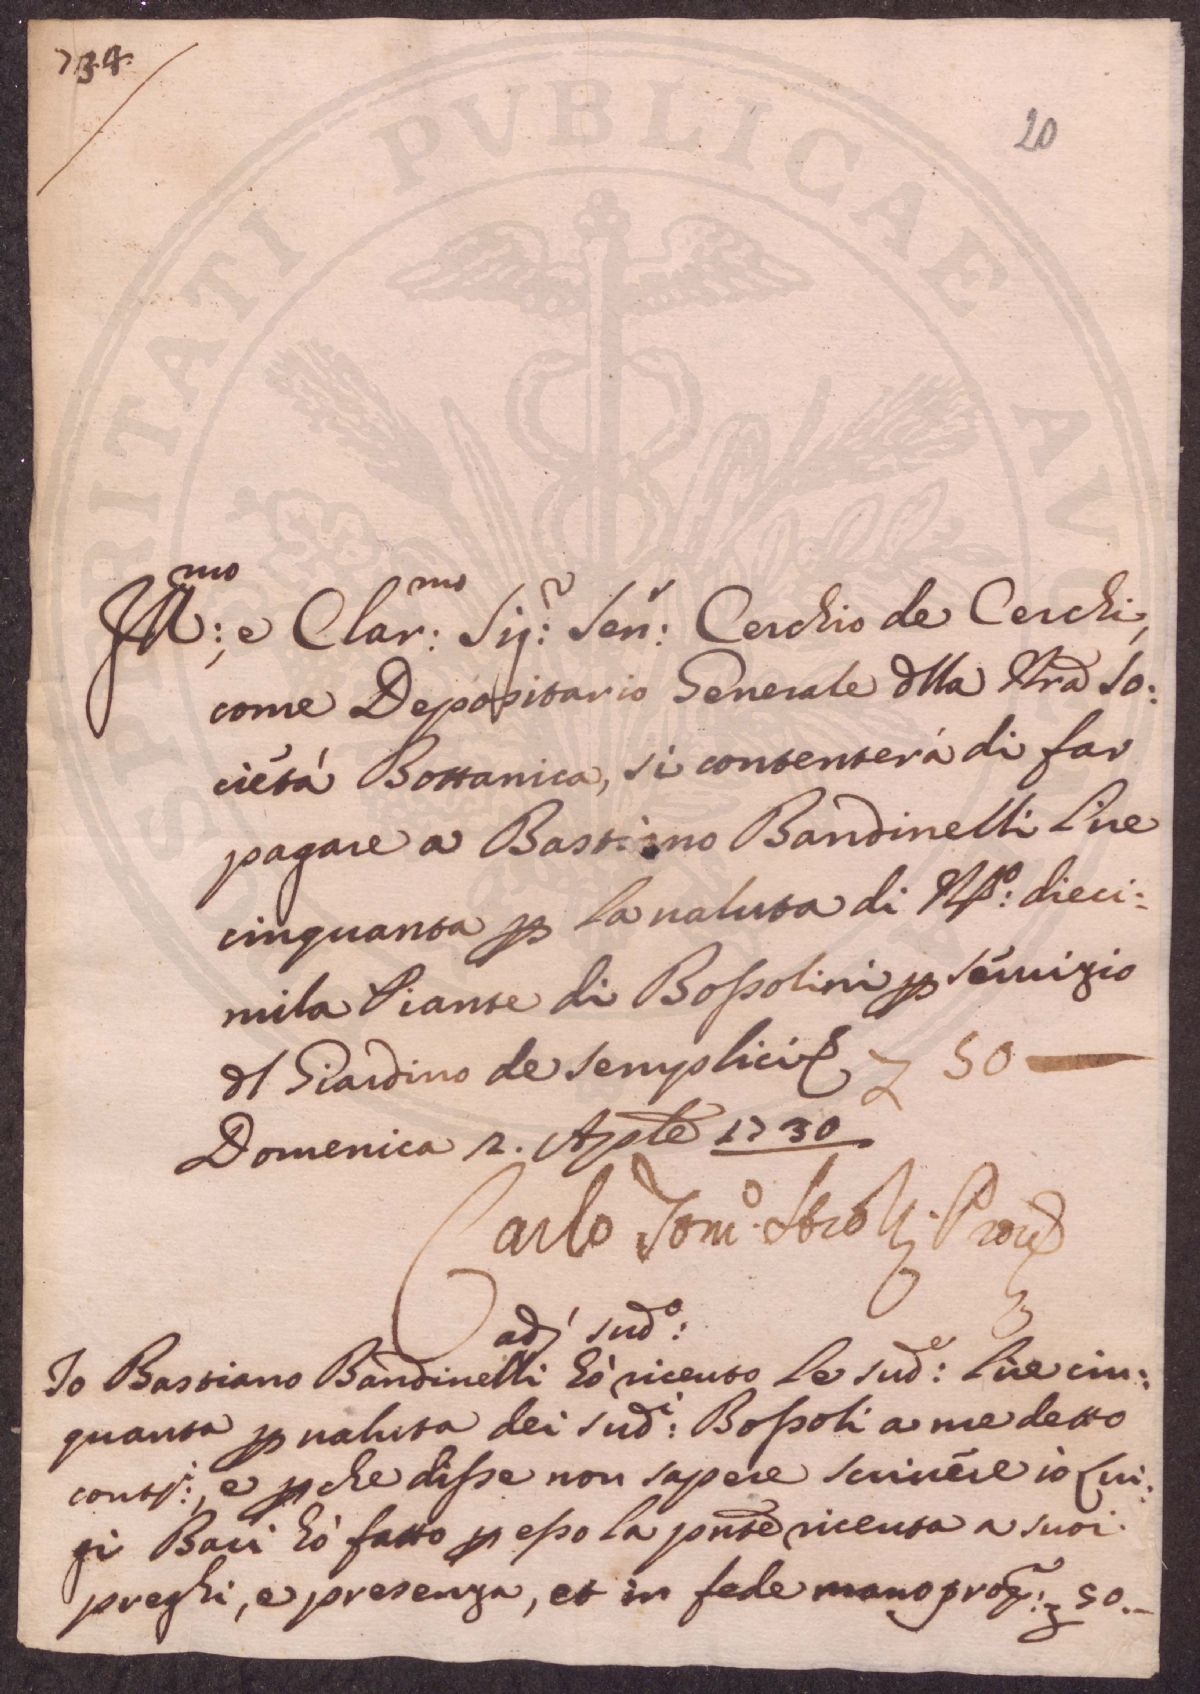 734.
20
PROSPERITATI PVBLICAE AVGENDAE
Ill.mo: e Clar.mo: Sig.r: Sen.r: Cerchio de Cerchi,
come Depositario Generale dlla Nrã So:
cietà Bottanica, si contenterà di far
pagare a Bastiano Bandinelli Lire
cinquanta p la valuta di N.o: dieci:
mila Piante di Bossolini p servizio
dl Giardino de semplici £ 50 —
Domenica 2. Aple 1730
Carlo Tom.o Strozzi Prov.e
adì sud.o:
Io Bastiano Bandinelli hò ricevto le sud.e: Lire cin:
quanta p valuta dei sud.i: Bossoli a me detto
cont.i:, e pche disse non sapere scrivere io Lui:
gi Baci hò fatto p esso la pnte ricevta a suoi
preghi, e presenza, et in fede mano prop.a: £ 50.—